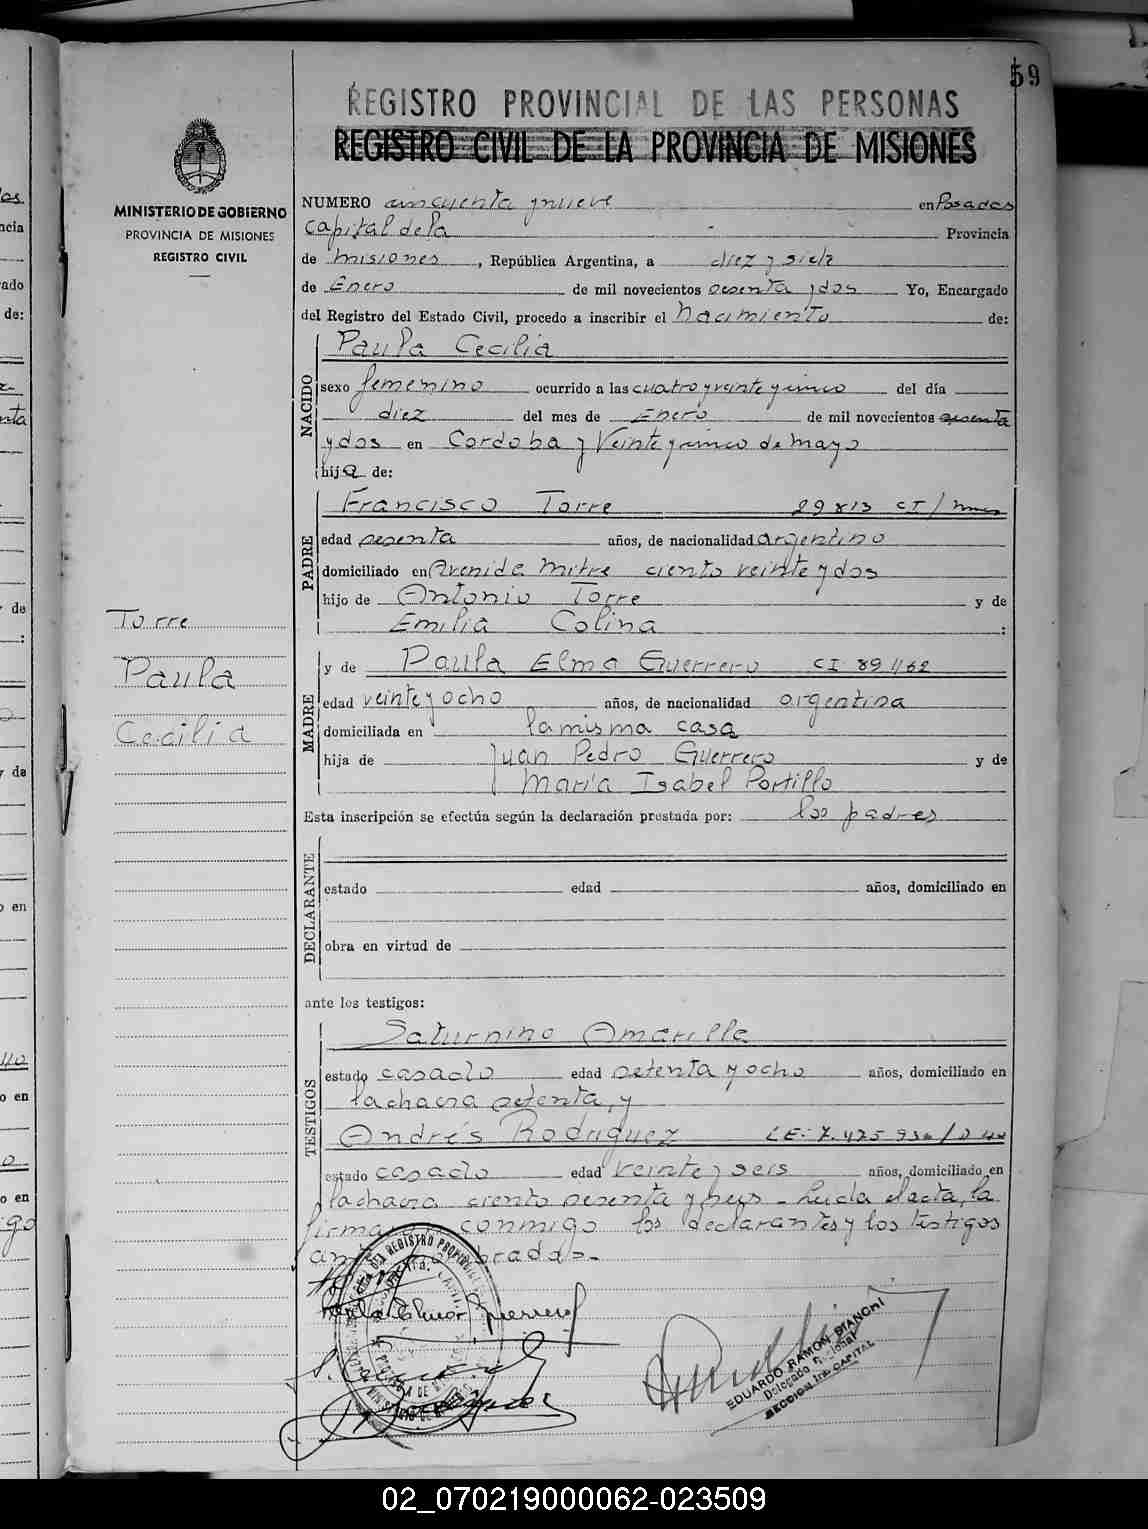 59
REGISTRO PROVINCIAL DE LAS PERSONAS
REGISTRO CIVIL DE LA PROVINCIA DE MISIONES
MINISTERIO DE GOBIERNO
PROVINCIA DE MISIONES
REGISTRO CIVIL
Torre
Paula
Cecilia
NUMERO cincuenta y nueve en Posadas
capital de la Provincia
de misiones, República Argentina, a diez y siete
de Enero de mil novecientos sesenta y dos Yo, Encargado
del Registro del Estado Civil, procedo a inscribir el nacimiento de:
NACIDO
Paula Cecilia
sexo femenino ocurrido a las cuatro y veinte y cinco del día
diez del mes de Enero de mil novecientos sesenta
y dos en Cordoba y Veinte y cinco de mayo
hija de:
PADRE
Francisco Torre 29813 CI/
edad sesenta años, de nacionalidad argentino
domiciliado en Avenida mitre ciento veinte y dos
hijo de Antonio Torre y de
Emilia Colina :
MADRE
y de Paula Elma Guerrero CI 89462
edad veinte y ocho años, de nacionalidad argentina
domiciliada en la misma casa
hija de Juan Pedro Guerrero y de
María Isabel Portillo
Esta inscripción se efectúa según la declaración prestada por: los padres
DECLARANTE
estado edad años, domiciliado en
obra en virtud de
ante los testigos:
TESTIGOS
Saturnino Amarilla
estado casado edad setenta y ocho años, domiciliado en
la chacra setenta, y
Andrés Rodriguez LE: 7.425.936/
estado casado edad veinte y seis años, domiciliado en
la chacra ciento sesenta y seis - Leida el acta, la
firma conmigo los declarantes y los testigos
brados.-
Guerrero
EDUARDO RAMON BIANCHI
Delegado Regional
SECCION 1ra. CAPITAL
02_070219000062-023509